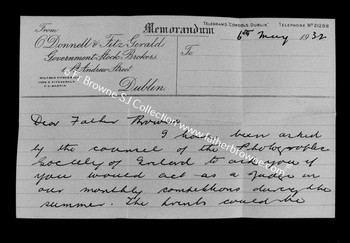 From
Memorandum
TELEGRAMS, "CONSOLS, DUBLIN"
TELEPHONE Nº 21289
O'Donnell & Fitz Gerald
Government Stock Brokers
St. Andrew Street
Dublin
To
6th May 1932
Fr Browne SJ Collection www.fatherbrowne.com
Dear Father Browne
I have been asked
by the council of the Photographic
Society of Ireland to ask you if
you would act as a judge in
our monthly competitions during the
summer. The prints could be